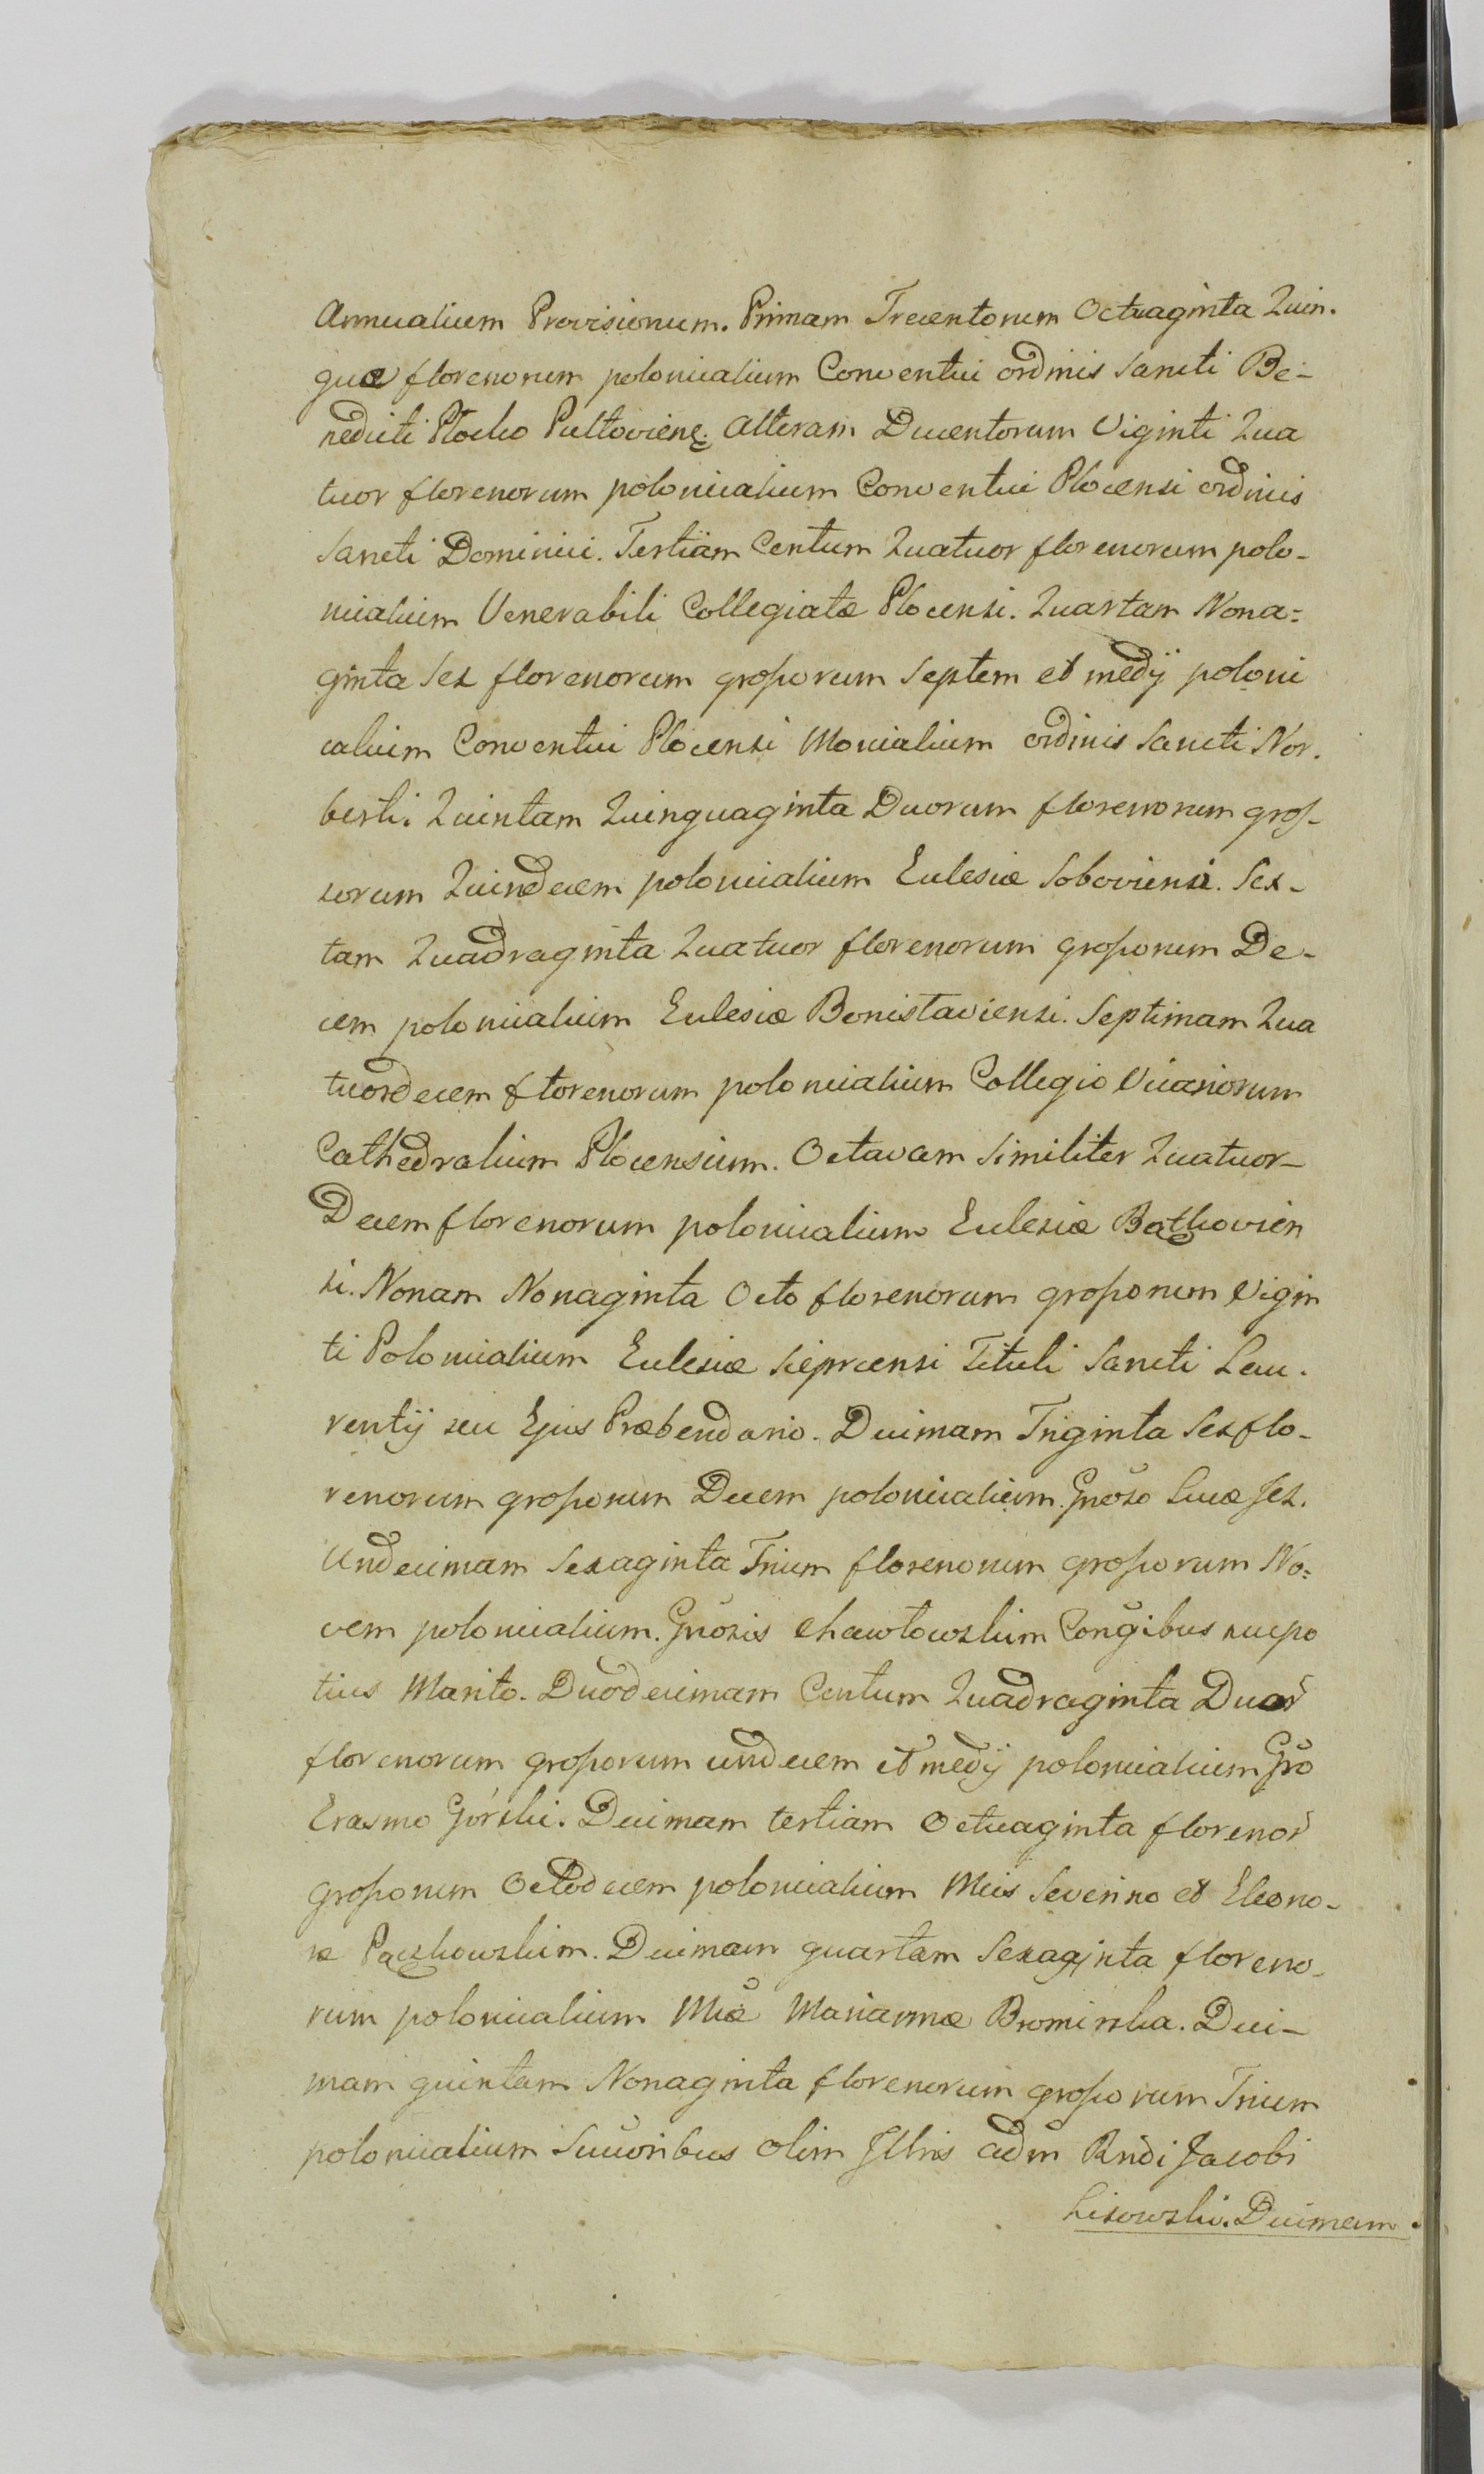 Annualium Provisionum. Primam Trecentorum Octuaginta Quin-
que florenorum polonicalium Conventui ordinis Sancti Be-
nedicti Płocko Pultoviens. Alteram Ducentorum Viginti Qua
tuor florenorum polonicalium Conventui Plocensi ordinis
Sancti Dominici. Tertiam Centum Quatuor florenorum polo-
nicalium Venerabili Collegiatæ Plocensi. Quartam Nona=
ginta Sex florenorum grossorum Septem et medij poloni
calium Conventui Plocensi Monialium ordinis Sancti Nor-
berti. Quintam Quinquaginta Duorum florenorum gros-
sorum Quindecem polonicalium Eclesiæ Soboviensi. Sex-
tam Quadraginta Quatuor florenorum grossorum De-
cem polonicalium Eclesiæ Bonislaviensi. Septimam Qua
tuordecem florenorum polonicalium Collegio Vicariorum
Cathedralium Plocensium. Octavam Similiter Quatuor-
Decem florenorum polonicalium Eclesiæ Bąthovien
si. Nonam Nonaginta Octo florenorum grossorum Vigin
ti Polonicalium Eclesiæ Sieprcensi Tituli Sancti Lau-
rentij seu Ejus Præbendario. Decimam Triginta Sex flo-
renorum grossorum Decem polonicalium. Gnoso Lucæ Jez.
Undecimam Sexaginta Trium florenorum grossorum No=
vem polonicalium. Gnosis Chawłowskim Congibus
tius Marito. Duodecimam Centum Quadraginta Duor
florenorum grossorum undecem et medij polonicalium Gso
Erasmo Górski. Decimam tertiam Octuaginta florenor
grossorum Octodecem polonicalium Mcis Severino et Eleono-
ræ Pączkowskim. Decimam quartam Sexaginta floreno-
rum polonicalium Mcæ Mariannæ Bromirska. Deci-
mam quintam Nonaginta florenorum grossorum Trium
polonicalium Succoribus olim Jllris adm Rndi Jacobi
Lisowski. Decimam